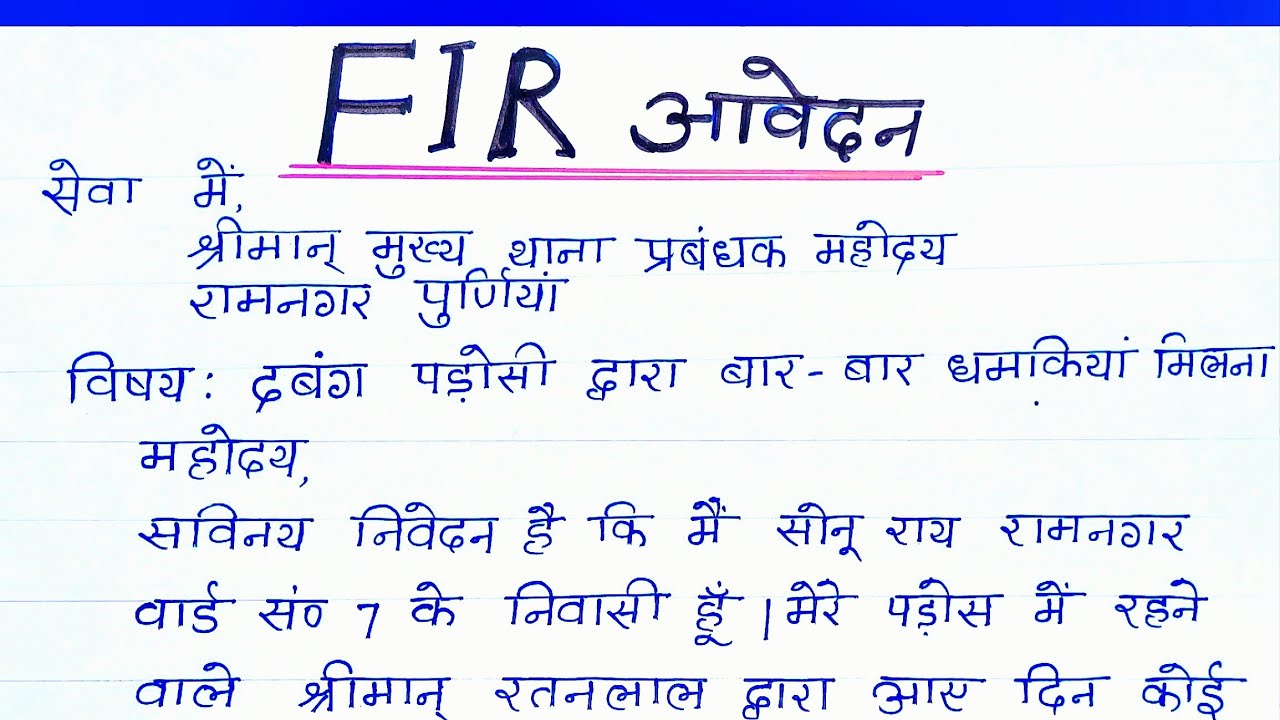 FIR आवेदन
सेवा में,
श्रीमान् मुख्य थाना प्रबंधक महोदय
रामनगर पुर्णियां
विषय: दबंग पड़ोसी द्वारा बार-बार धमकियां मिलना
महोदय,
सविनय निवेदन है कि मैं सोनू राय रामनगर
वार्ड सं० 7 के निवासी हूँ । मेरे पड़ोस में रहने
वाले श्रीमान् रतनलाल द्वारा आए दिन कोई